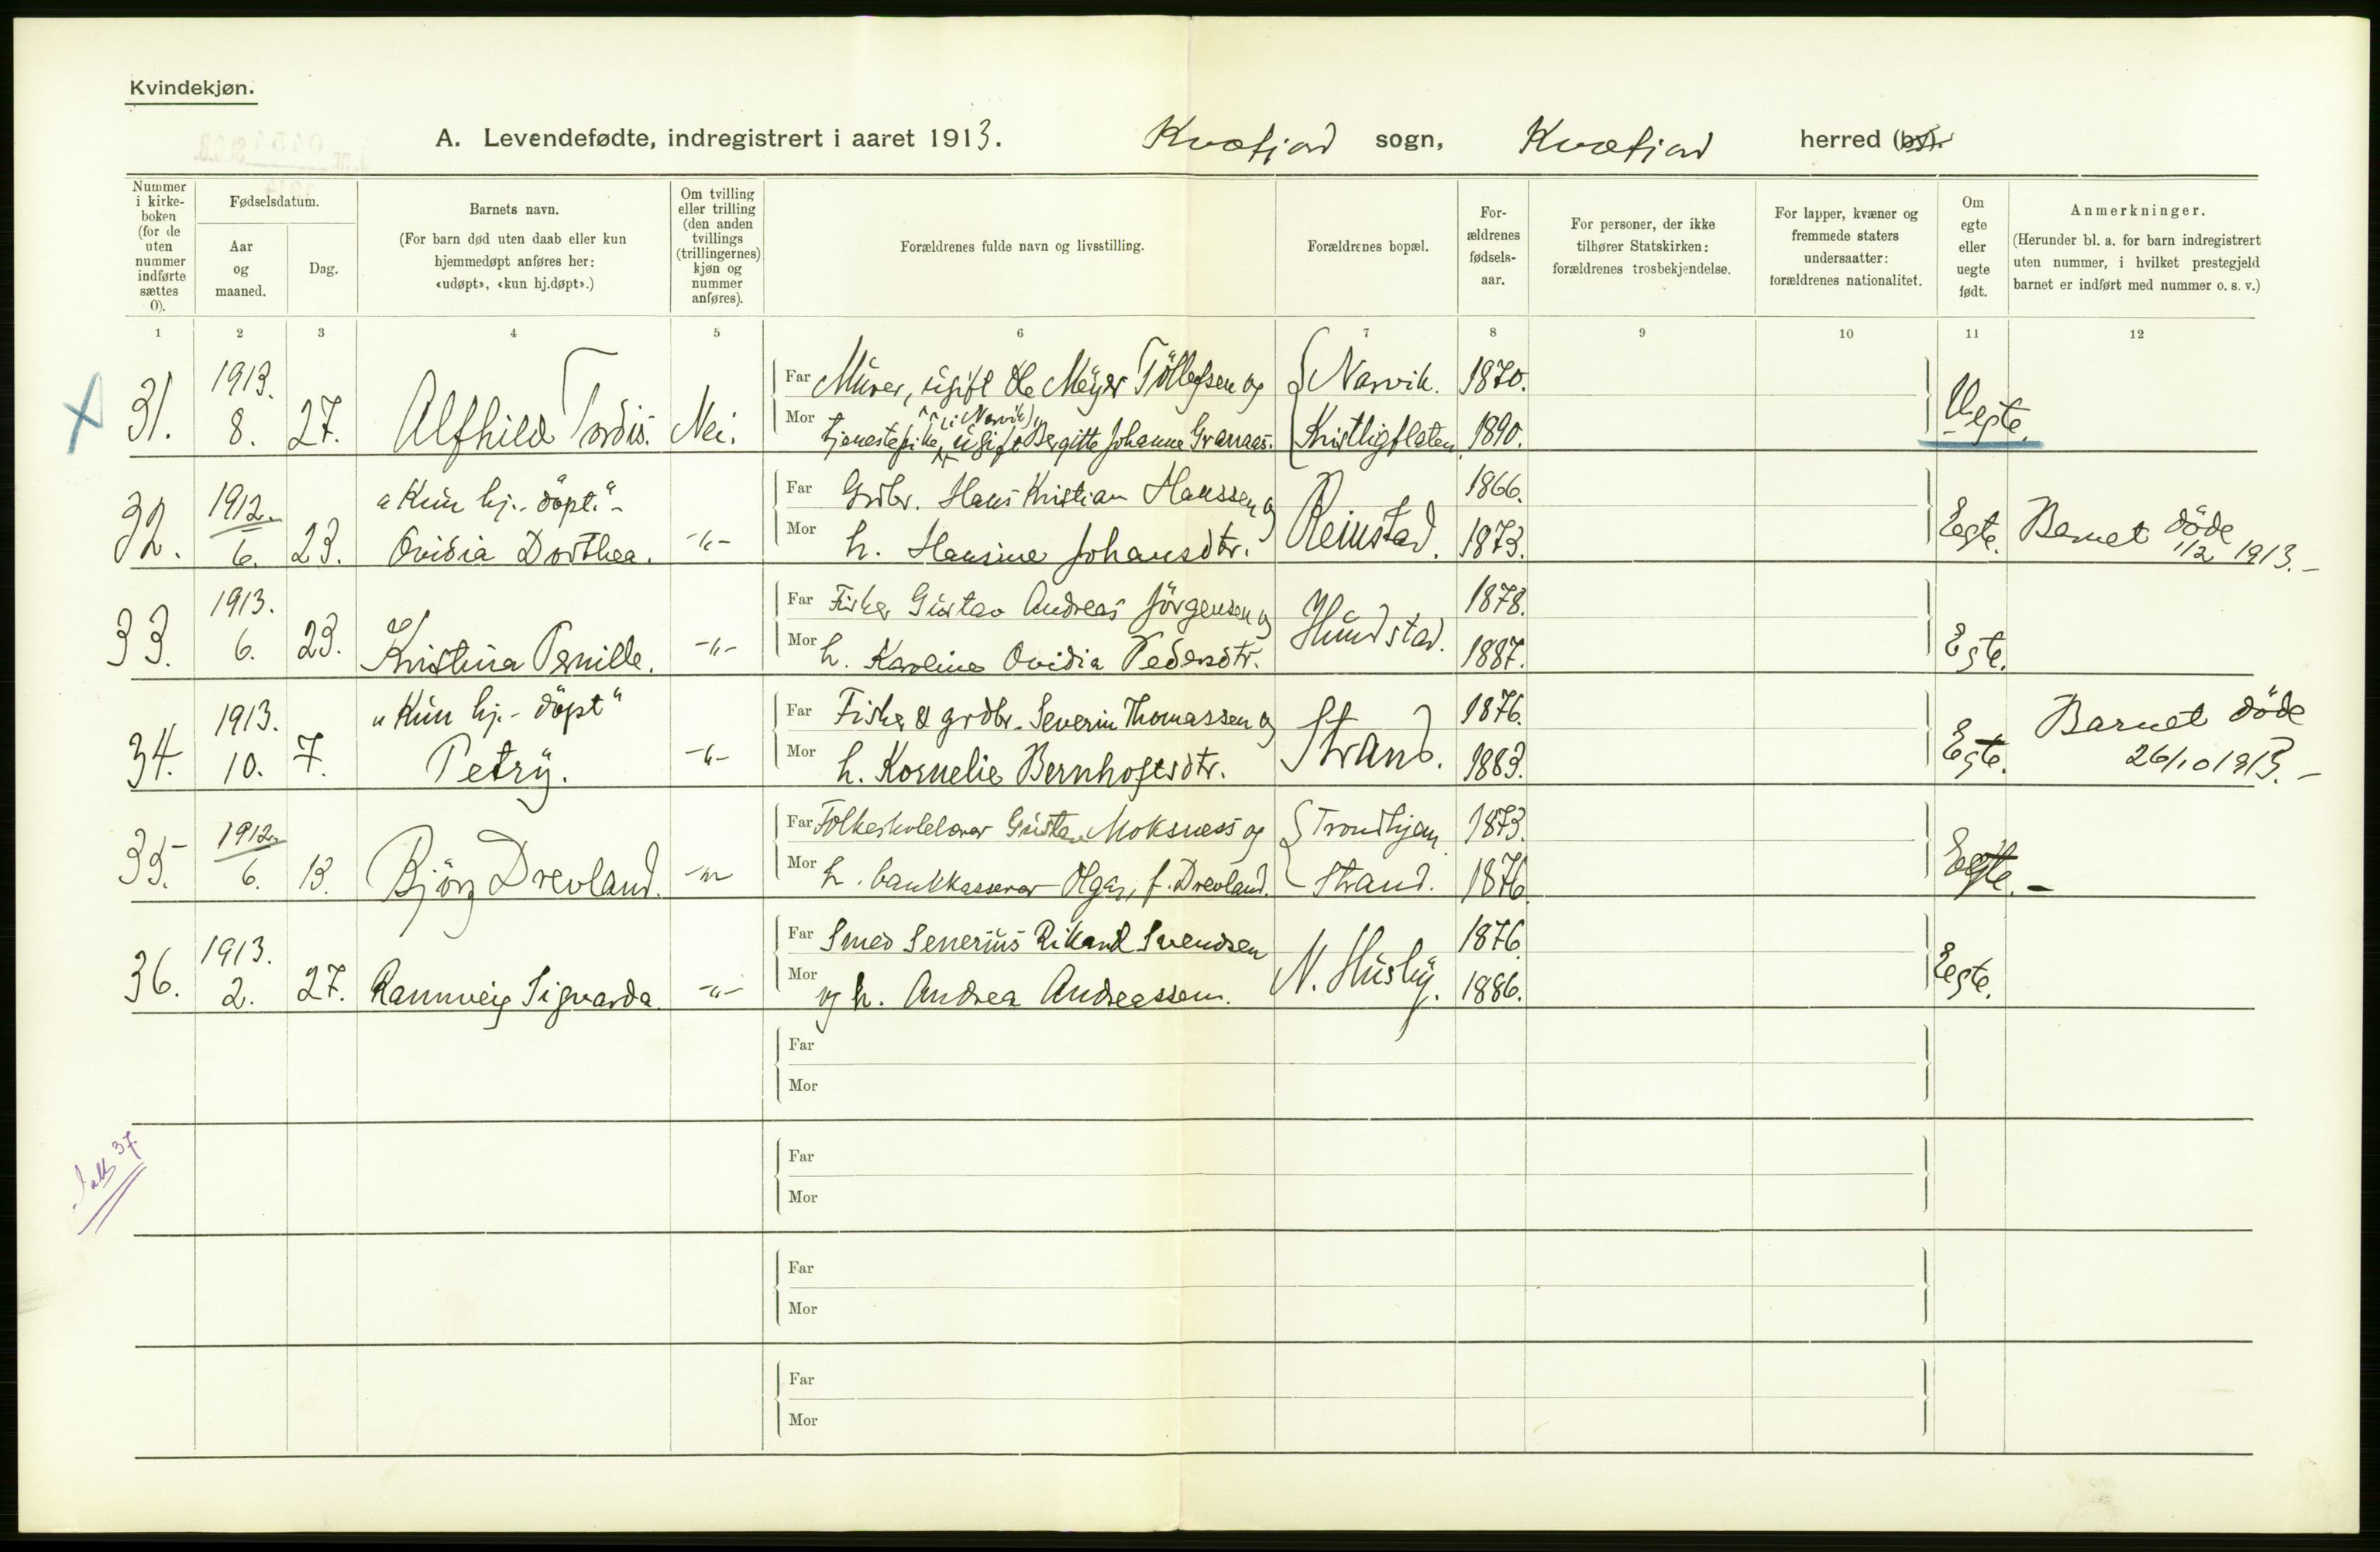 Kvindekjøn.
A. Levendefødte, indregistrert i aaret 1913. Kvæfjord sogn, Kvæfjord herred (by).
Nummer i kirkeboken (for de uten nummer indførte sættes 0).
Fødselsdatum.
Aar og maaned.
Dag.
Barnets navn.
(For barn død uten daab eller kun hjemmedøpt anføres her: «udøpt», «kun hj.døpt».)
Om tvilling eller trilling (den anden tvillings (trillingernes) kjøn og nummer anføres).
Forældrenes fulde navn og livsstilling.
Forældrenes bopæl.
Forældrenes fødselsaar.
For personer, der ikke tilhører Statskirken: forældrenes trosbekjendelse.
For lapper, kvæner og fremmede staters undersaatter: forældrenes nationalitet.
Om egte eller uegte født.
Anmerkninger.
(Herunder bl. a. for barn indregistrert uten nummer, i hvilket prestegjeld barnet er indført med nummer o. s. v.)
1 2 3 4 5 6 7 8 9 10 11 12
X 31. 1913. 8. 27. Alfhild Tordis. Nei.
Far Murer, ugift Ole Meyer Tøllefsen og Narvik. 1870.
Mor tjenestepike (i Narvik), ugift Bergitte Johanne Granaas. Kristligflaten 1890. Uegte.
32. 1912. 6. 23. "Kun hj.-døpt."- Ovidia Dorthea. -"-
Far Grdbr. Hans Kristian Hanssen og 1866.
Mor h. Hansine Johansdtr. Reinstad. 1873. Egte. Barnet døde 1/2 1913.-
33. 1913. 6. 23. Kristina Pernille. -"-
Far Fisker Gustav Andreas Jörgensen og 1878.
Mor h. Karoline Ovidia Pedersdtr. Hundstad. 1887. Egte.
34. 1913. 10. 7. "Kun hj.-døpt" Petry. -"-
Far Fisker & grdbr. Severin Thomassen og 1876.
Mor h. Kornelie Bernhoftsdtr. Strand. 1883. Egte. Barnet døde 26/10 1913.-
35. 1912. 6. 13. Björg Drevland. -"-
Far Folkeskolelærer Gustav Moksness og Trondhjem 1873.
Mor h. bankkasserer Olga, f. Drevland. Strand. 1876 Egte.-
36. 1913. 2. 27. Rannveig Sigvarda. -"-
Far Smed Senerius Rikard Svendsen 1876.
Mor og h. Andrea Andreassen. N. Husby. 1886. Egte.
Far
Mor
Far
Mor
37.
Far
Mor
Far
Mor